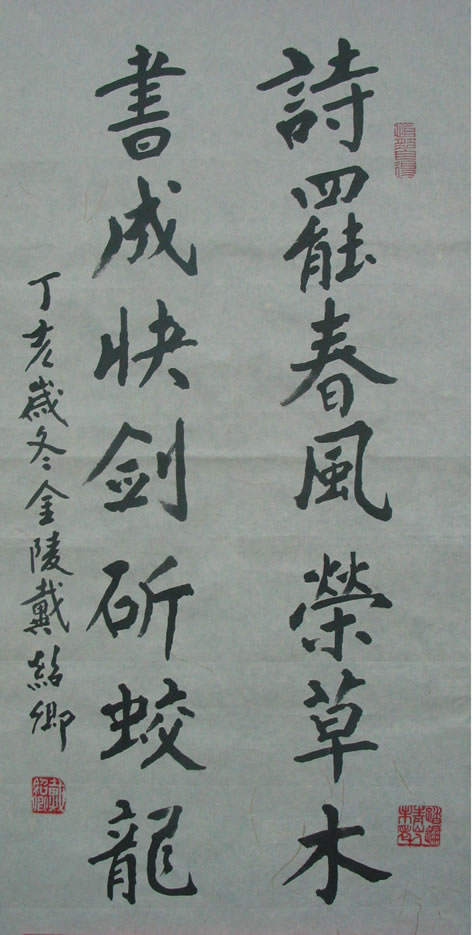 詩罷春風榮草木
書成快劍斫蛟龍
丁亥歲冬金陵戴紹卿